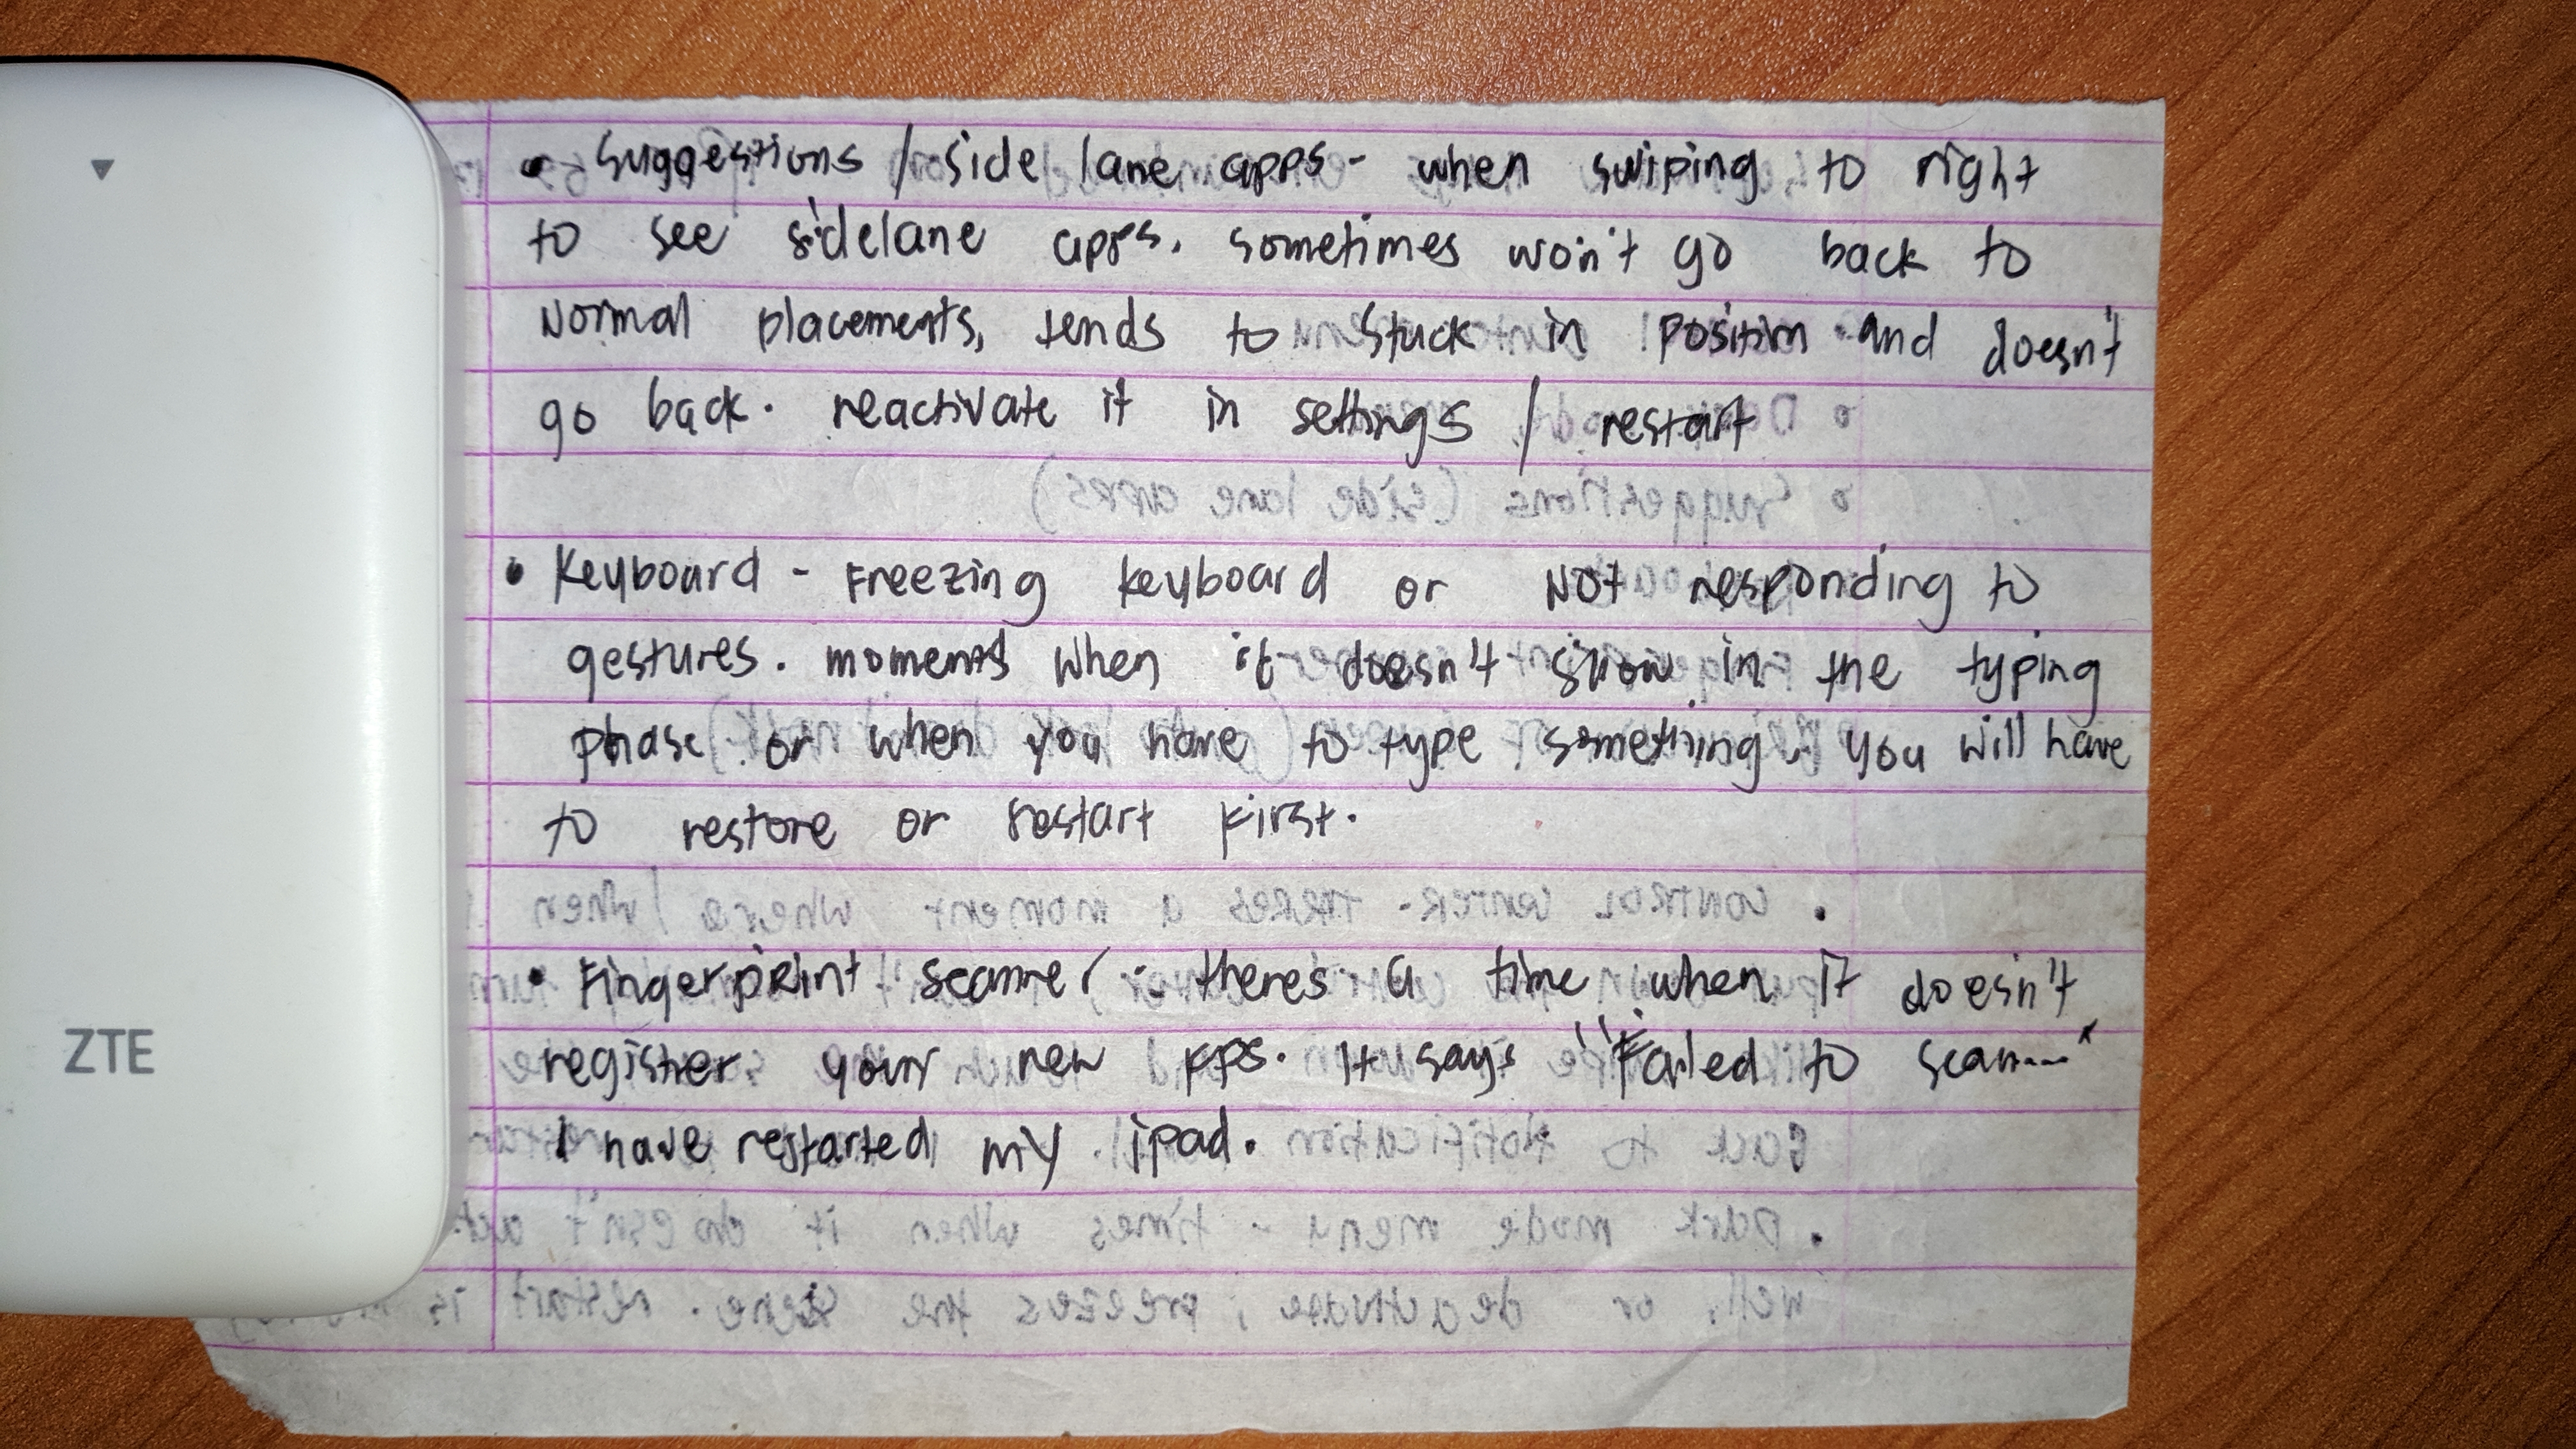 ZTE
• Suggestions / side lane apps - when swiping to right
to see sidelane apps. sometimes won't go back to
Normal placements, tends to stuck in position and doesn't
go back. reactivate it in settings / restart
• Keyboard - Freezing keyboard or NOT responding to
gestures. moments when it doesn't show in the typing
phase or when you have to type something. you will have
to restore or restart first.
• Fingerprint scanner - theres a time when it doesn't
register your new fps. It says "Failed to scan---"
I have restarted my ipad.